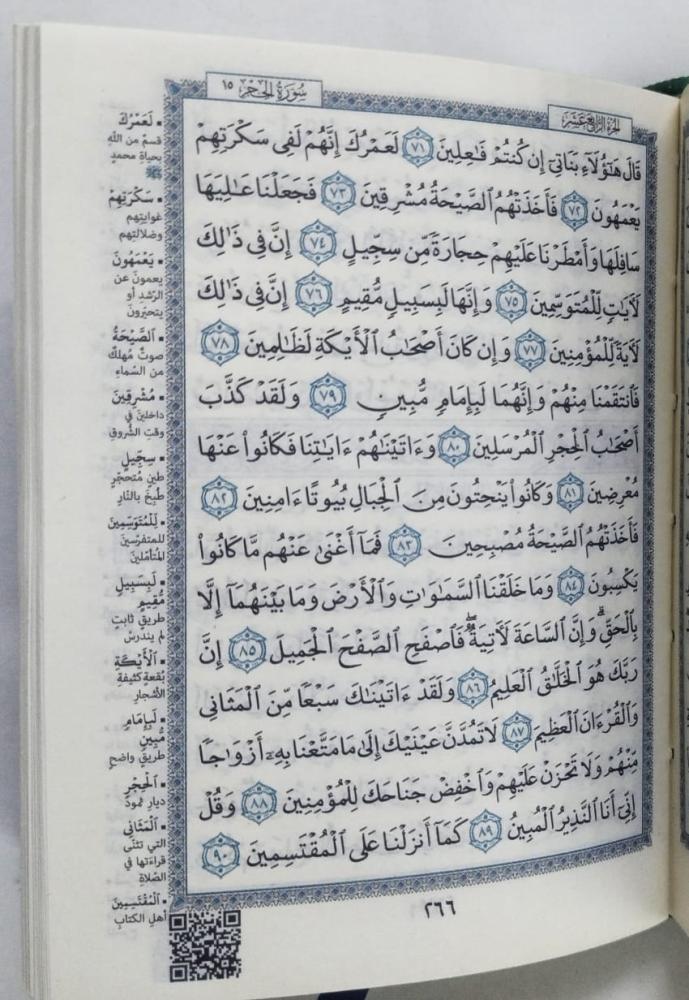 سُورَةُ الحِجْرِ ١٥
الجُزْءُ الرَّابِعُ عَشَرَ
قَالَ هَٰٓؤُلَآءِ بَنَاتِيٓ إِن كُنتُمْ فَٰعِلِينَ ٧١ لَعَمْرُكَ إِنَّهُمْ لَفِي سَكْرَتِهِمْ
يَعْمَهُونَ ٧٢ فَأَخَذَتْهُمُ ٱلصَّيْحَةُ مُشْرِقِينَ ٧٣ فَجَعَلْنَا عَٰلِيَهَا
سَافِلَهَا وَأَمْطَرْنَا عَلَيْهِمْ حِجَارَةً مِّن سِجِّيلٍ ٧٤ إِنَّ فِي ذَٰلِكَ
لَأٓيَٰتٍ لِّلْمُتَوَسِّمِينَ ٧٥ وَإِنَّهَا لَبِسَبِيلٍ مُّقِيمٍ ٧٦ إِنَّ فِي ذَٰلِكَ
لَأٓيَةً لِّلْمُؤْمِنِينَ ٧٧ وَإِن كَانَ أَصْحَٰبُ ٱلْأَيْكَةِ لَظَٰلِمِينَ ٧٨
فَٱنتَقَمْنَا مِنْهُمْ وَإِنَّهُمَا لَبِإِمَامٍ مُّبِينٍ ٧٩ وَلَقَدْ كَذَّبَ
أَصْحَٰبُ ٱلْحِجْرِ ٱلْمُرْسَلِينَ ٨٠ وَءَاتَيْنَٰهُمْ ءَايَٰتِنَا فَكَانُوا۟ عَنْهَا
مُعْرِضِينَ ٨١ وَكَانُوا۟ يَنْحِتُونَ مِنَ ٱلْجِبَالِ بُيُوتًا ءَامِنِينَ ٨٢
فَأَخَذَتْهُمُ ٱلصَّيْحَةُ مُصْبِحِينَ ٨٣ فَمَآ أَغْنَىٰ عَنْهُم مَّا كَانُوا۟
يَكْسِبُونَ ٨٤ وَمَا خَلَقْنَا ٱلسَّمَٰوَٰتِ وَٱلْأَرْضَ وَمَا بَيْنَهُمَآ إِلَّا
بِٱلْحَقِّ ۗ وَإِنَّ ٱلسَّاعَةَ لَأٓتِيَةٌ ۖ فَٱصْفَحِ ٱلصَّفْحَ ٱلْجَمِيلَ ٨٥ إِنَّ
رَبَّكَ هُوَ ٱلْخَلَّٰقُ ٱلْعَلِيمُ ٨٦ وَلَقَدْ ءَاتَيْنَٰكَ سَبْعًا مِّنَ ٱلْمَثَانِي
وَٱلْقُرْءَانَ ٱلْعَظِيمَ ٨٧ لَا تَمُدَّنَّ عَيْنَيْكَ إِلَىٰ مَا مَتَّعْنَا بِهِۦٓ أَزْوَٰجًا
مِّنْهُمْ وَلَا تَحْزَنْ عَلَيْهِمْ وَٱخْفِضْ جَنَاحَكَ لِلْمُؤْمِنِينَ ٨٨ وَقُلْ
إِنِّيٓ أَنَا ٱلنَّذِيرُ ٱلْمُبِينُ ٨٩ كَمَآ أَنزَلْنَا عَلَى ٱلْمُقْتَسِمِينَ ٩٠
▪ لَعَمْرُكَ
قسمٌ من اللهِ
بحياةِ محمدٍ
ﷺ
▪ سَكْرَتِهِمْ
غوايتِهم
وضلالتِهم
▪ يَعْمَهُونَ
يعمون عن
الرُّشدِ أو
يتحيَّرونَ
▪ ٱلصَّيْحَةُ
صوتٌ مُهلكٌ
من السَّماءِ
▪ مُشْرِقِينَ
داخلينَ في
وقتِ الشُّروقِ
▪ سِجِّيلٍ
طينٍ متحجِّرٍ
طُبِخَ بالنَّارِ
▪ لِّلْمُتَوَسِّمِينَ
للمتفرِّسينَ
المُتأمِّلينَ
▪ لَبِسَبِيلٍ
مُّقِيمٍ
طريقٍ ثابتٍ
لم يندرسْ
▪ ٱلْأَيْكَةِ
بُقعةٍ كثيفةِ
الأشجارِ
▪ لَبِإِمَامٍ
مُّبِينٍ
طريقٍ واضحٍ
▪ ٱلْحِجْرِ
ديارِ ثمودَ
▪ ٱلْمَثَانِي
التي تثنَّى
قراءتها في
الصَّلاةِ
▪ ٱلْمُقْتَسِمِينَ
أهلِ الكتابِ
٢٦٦